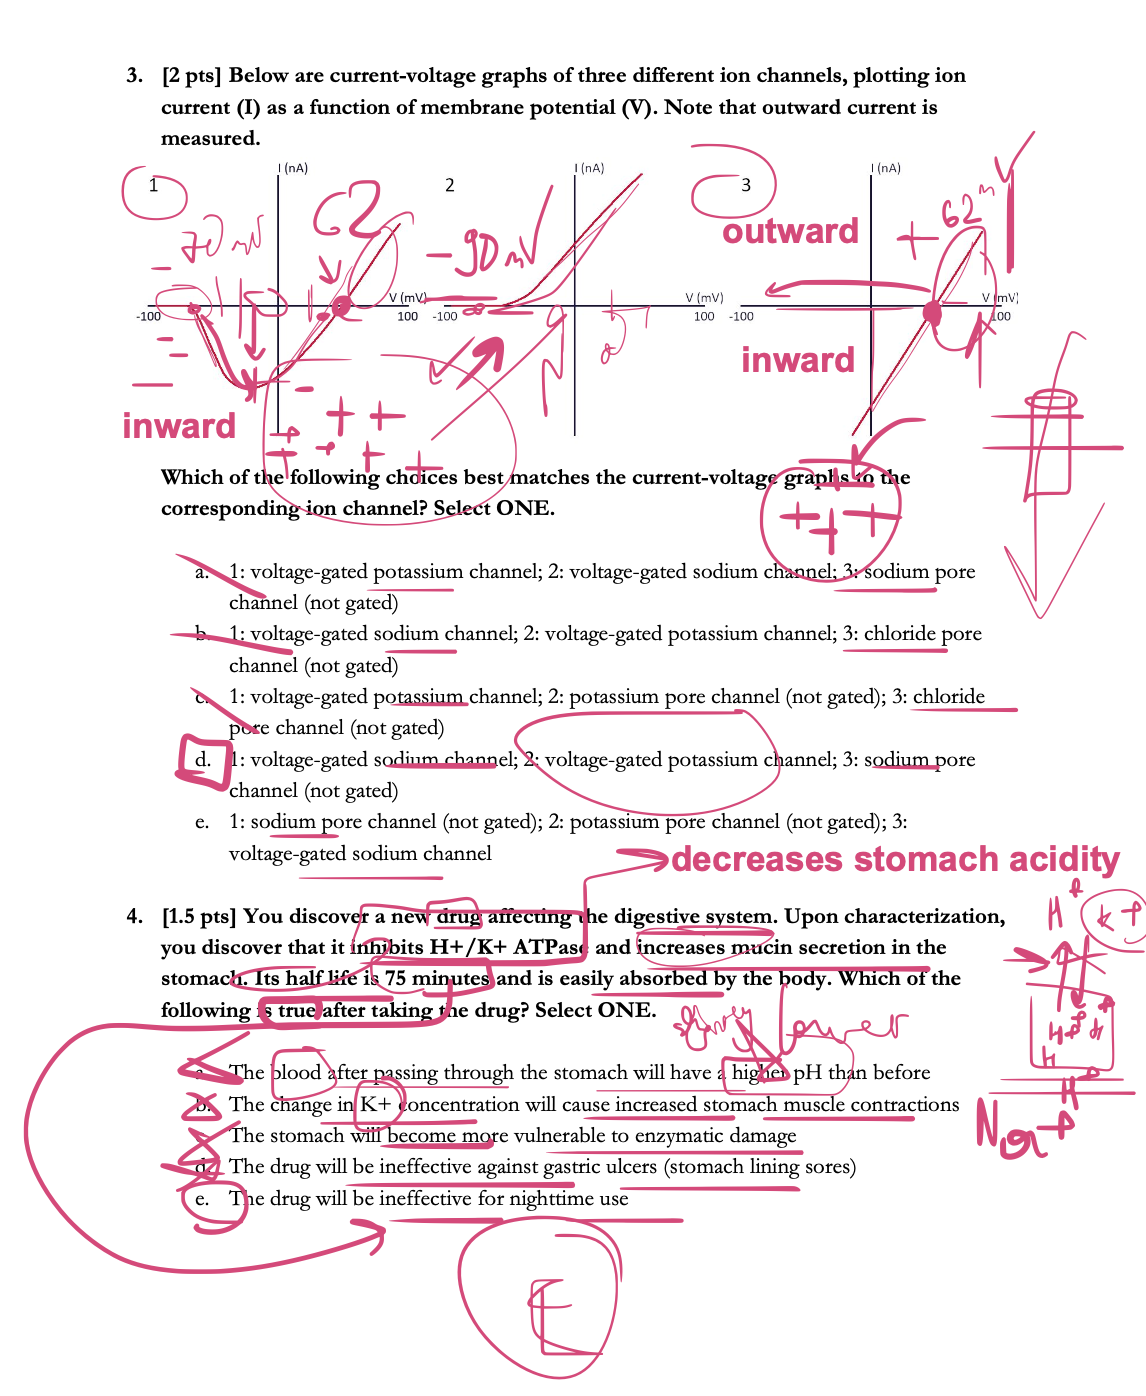 3. [2 pts] Below are current-voltage graphs of three different ion channels, plotting ion
current (I) as a function of membrane potential (V). Note that outward current is
measured.
1
I (nA)
2
I (nA)
3
I (nA)
-70 mV
62
-90 mV
outward
+62 mV
V (mV)
-100
100
V (mV)
-100
100
V (mV)
-100
100
inward
inward
Which of the following choices best matches the current-voltage graphs to the
corresponding ion channel? Select ONE.
a. 1: voltage-gated potassium channel; 2: voltage-gated sodium channel; 3: sodium pore
channel (not gated)
b. 1: voltage-gated sodium channel; 2: voltage-gated potassium channel; 3: chloride pore
channel (not gated)
c. 1: voltage-gated potassium channel; 2: potassium pore channel (not gated); 3: chloride
pore channel (not gated)
d. 1: voltage-gated sodium channel; 2: voltage-gated potassium channel; 3: sodium pore
channel (not gated)
e. 1: sodium pore channel (not gated); 2: potassium pore channel (not gated); 3:
voltage-gated sodium channel
decreases stomach acidity
4. [1.5 pts] You discover a new drug affecting the digestive system. Upon characterization,
you discover that it inhibits H+/K+ ATPase and increases mucin secretion in the
stomach. Its half life is 75 minutes and is easily absorbed by the body. Which of the
following is true after taking the drug? Select ONE.
H+
K+
lower
a. The blood after passing through the stomach will have a higher pH than before
b. The change in K+ concentration will cause increased stomach muscle contractions
The stomach will become more vulnerable to enzymatic damage
d. The drug will be ineffective against gastric ulcers (stomach lining sores)
e. The drug will be ineffective for nighttime use
H+
E